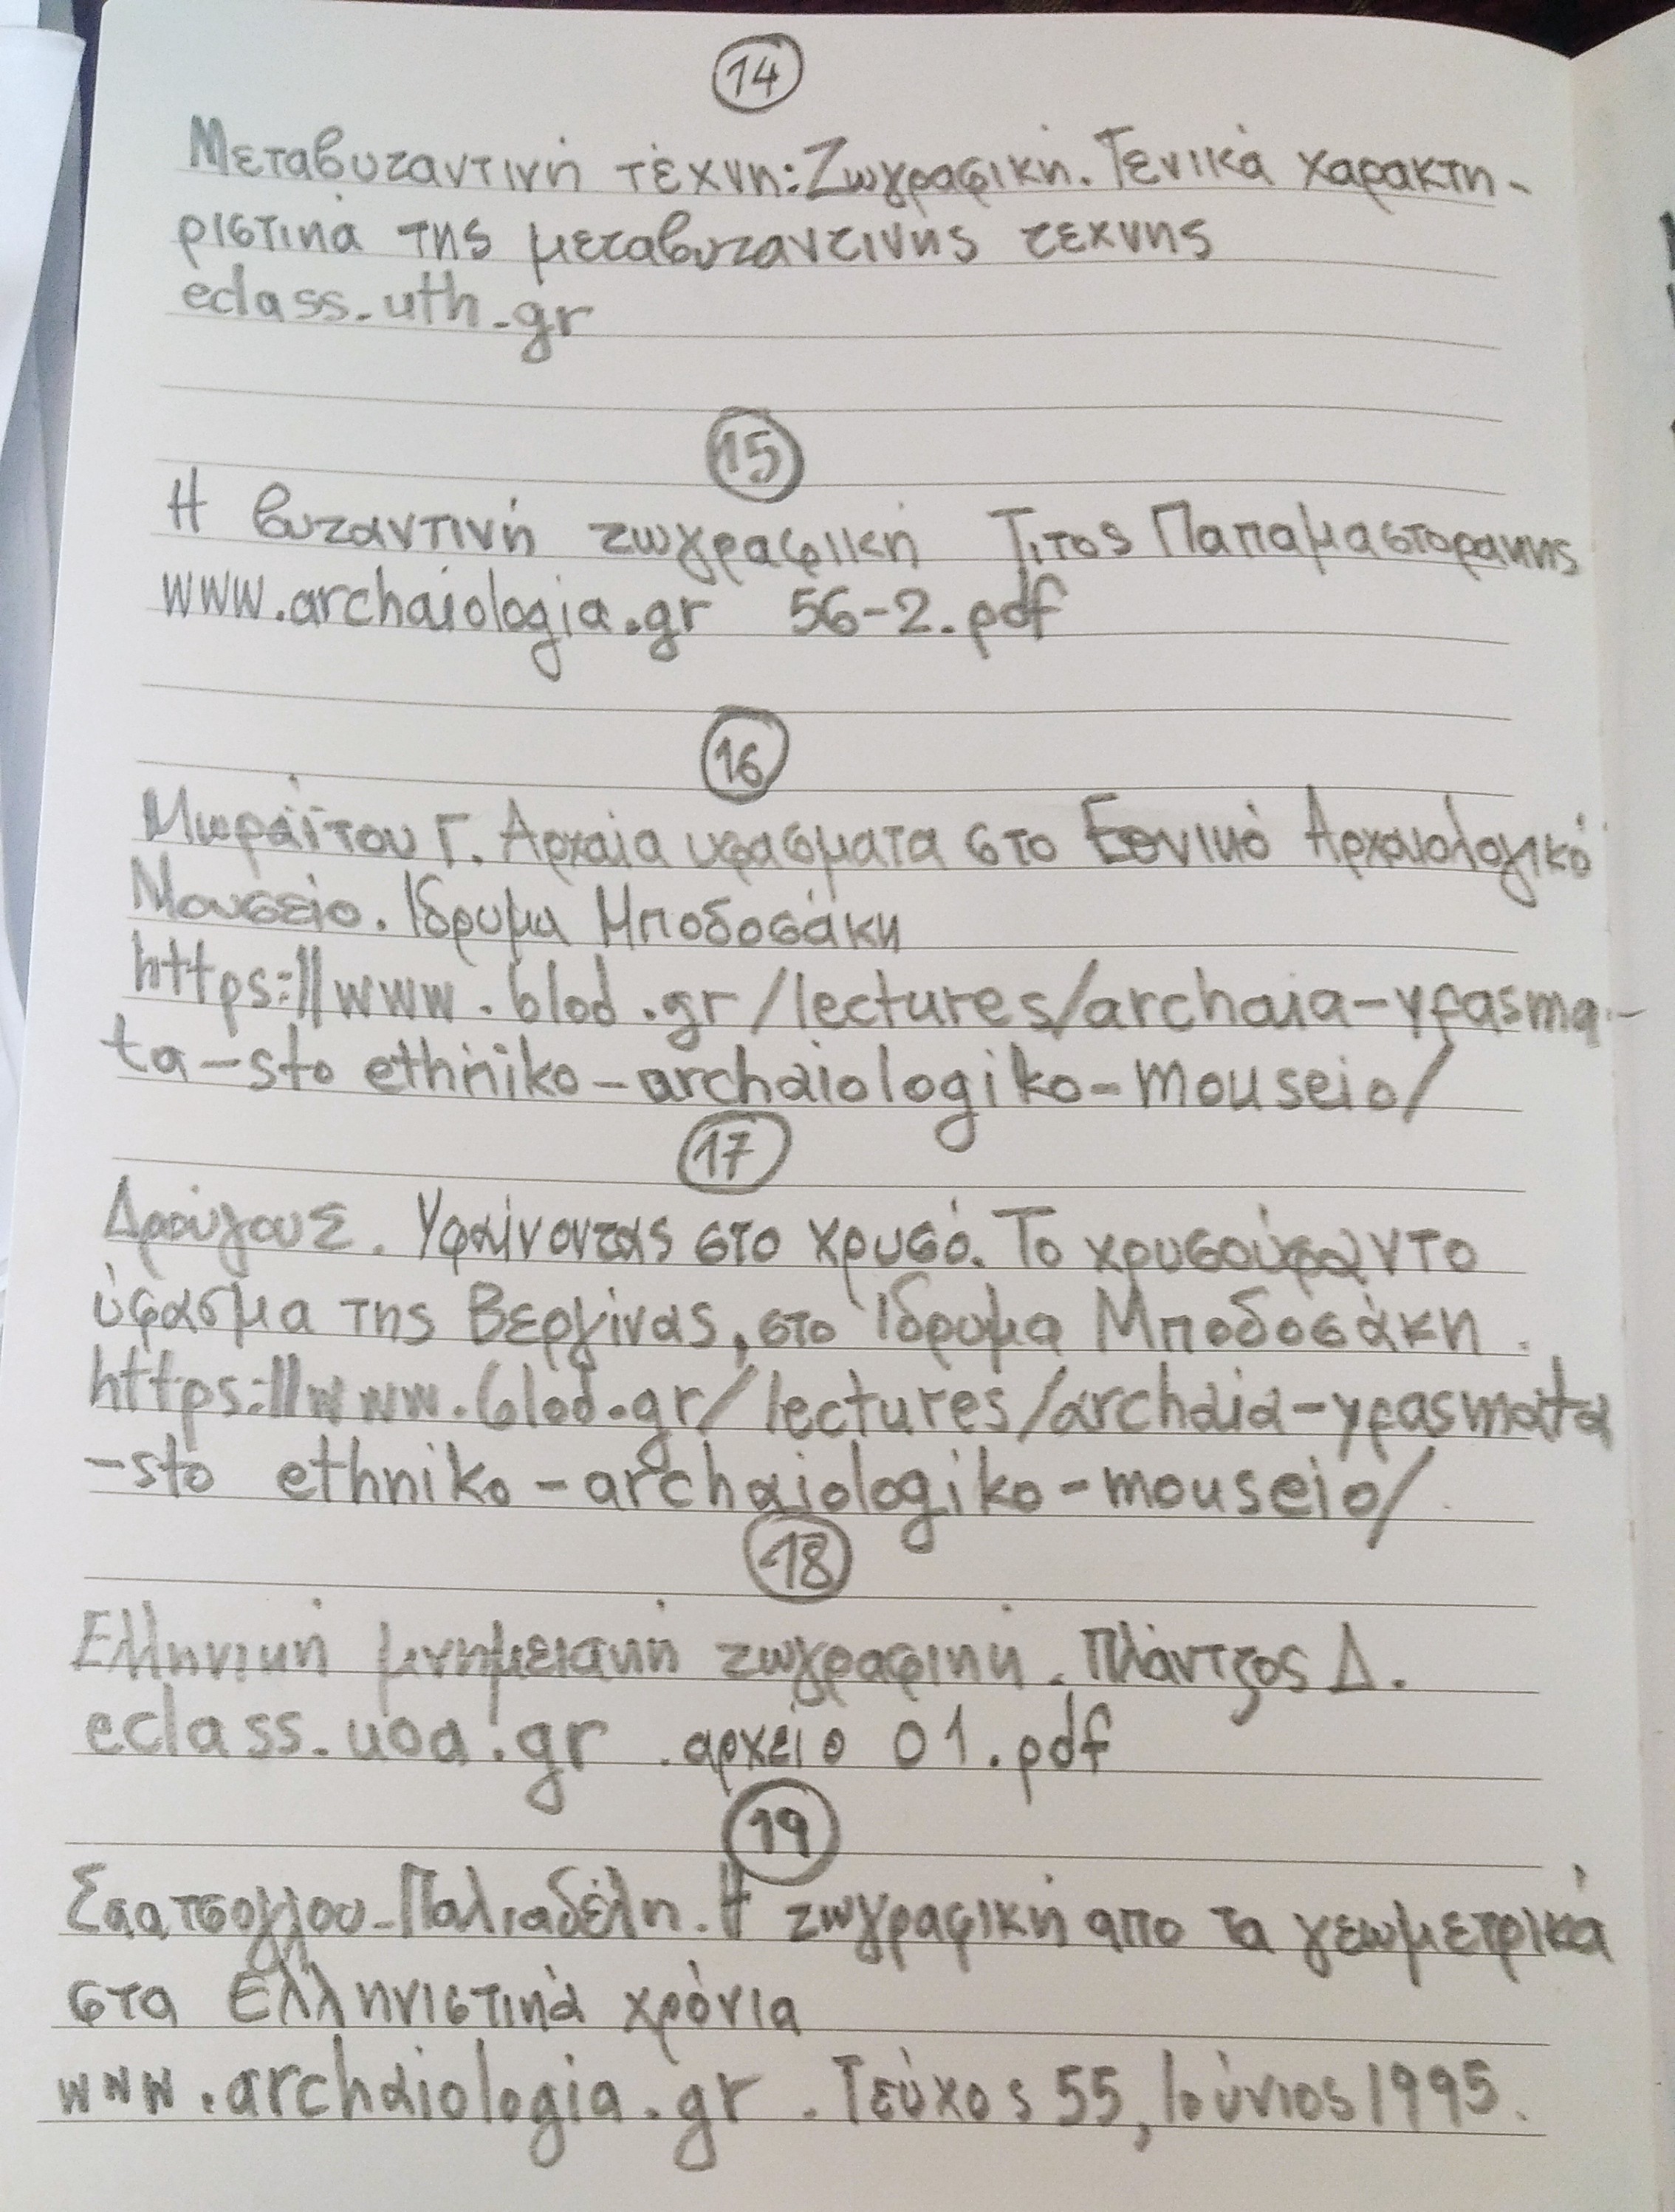 14
Μεταβυζαντινή τέχνη: Ζωγραφική. Γενικά χαρακτη-
ριστικά της μεταβυζαντινης τεχνης
eclass.uth.gr
15
Η βυζαντινή ζωγραφική Τιτος Παπαμαστορακης
www.archaiologia.gr 56-2.pdf
16
Μωραΐτου Γ. Αρχαία υφασματα στο Εθνικό Αρχαιολογικό
Μουσείο. Ιδρυμα Μποδοσάκη
https://www.blod.gr/lectures/archaia-yfasma-
ta-sto ethniko-archaiologiko-mouseio/
17
Δρούγου Σ. Υφαίνοντας στο χρυσό. Το χρυσούφαντο
ύφασμα της Βεργίνας, στο Ίδρυμα Μποδοσάκη.
https://www.blod.gr/lectures/archaia-yfasmata
-sto ethniko-archaiologiko-mouseio/
18
Ελληνική μνημειακή ζωγραφική. Πλάντζος Δ.
eclass.uoa.gr .αρχείο 01.pdf
19
Σαατσογλου-Παλιαδέλη. Η ζωγραφική απο τα γεωμετρικά
στα Ελληνιστικά χρόνια
www.archaiologia.gr. Τεύχος 55, Ιούνιος 1995.